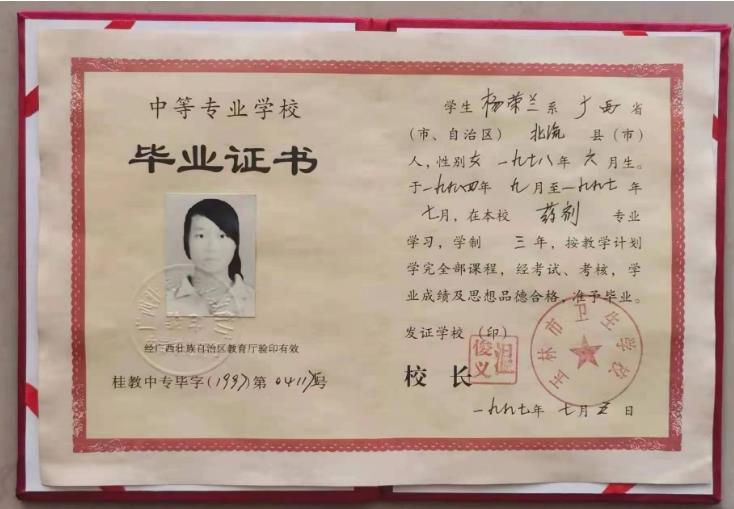 中等专业学校
毕业证书
经广西壮族自治区教育厅验印有效
桂教中专毕字(1997)第0411号
学生 杨荣兰 系 广西 省
(市、自治区) 北流 县(市)
人，性别 女 一九七八年 六 月生。
于一九九四年 九 月至一九九七 年
七月，在本校 药剂 专业
学习，学制 三 年，按教学计划
学完全部课程，经考试、考核，学
业成绩及思想品德合格，准予毕业。
发证学校 (印)
校 长
俊义
玉林市卫生学校
一九九七年 七月 五 日